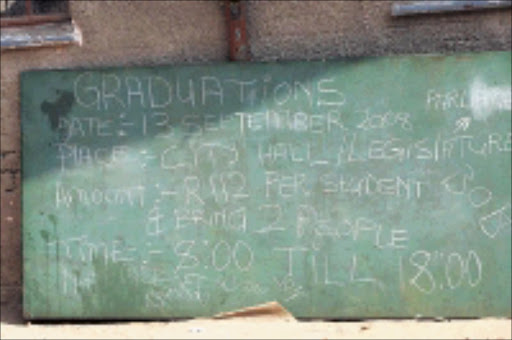 GRADUATIONS
DATE:- 13 SEPTEMBER 2008
PLACE:- CITY HALL/LEGISLATURE
AMOUNT:- R112 PER STUDENT
& BRING 2 PEOPLE
TIME:- 8:00 TILL 18:00